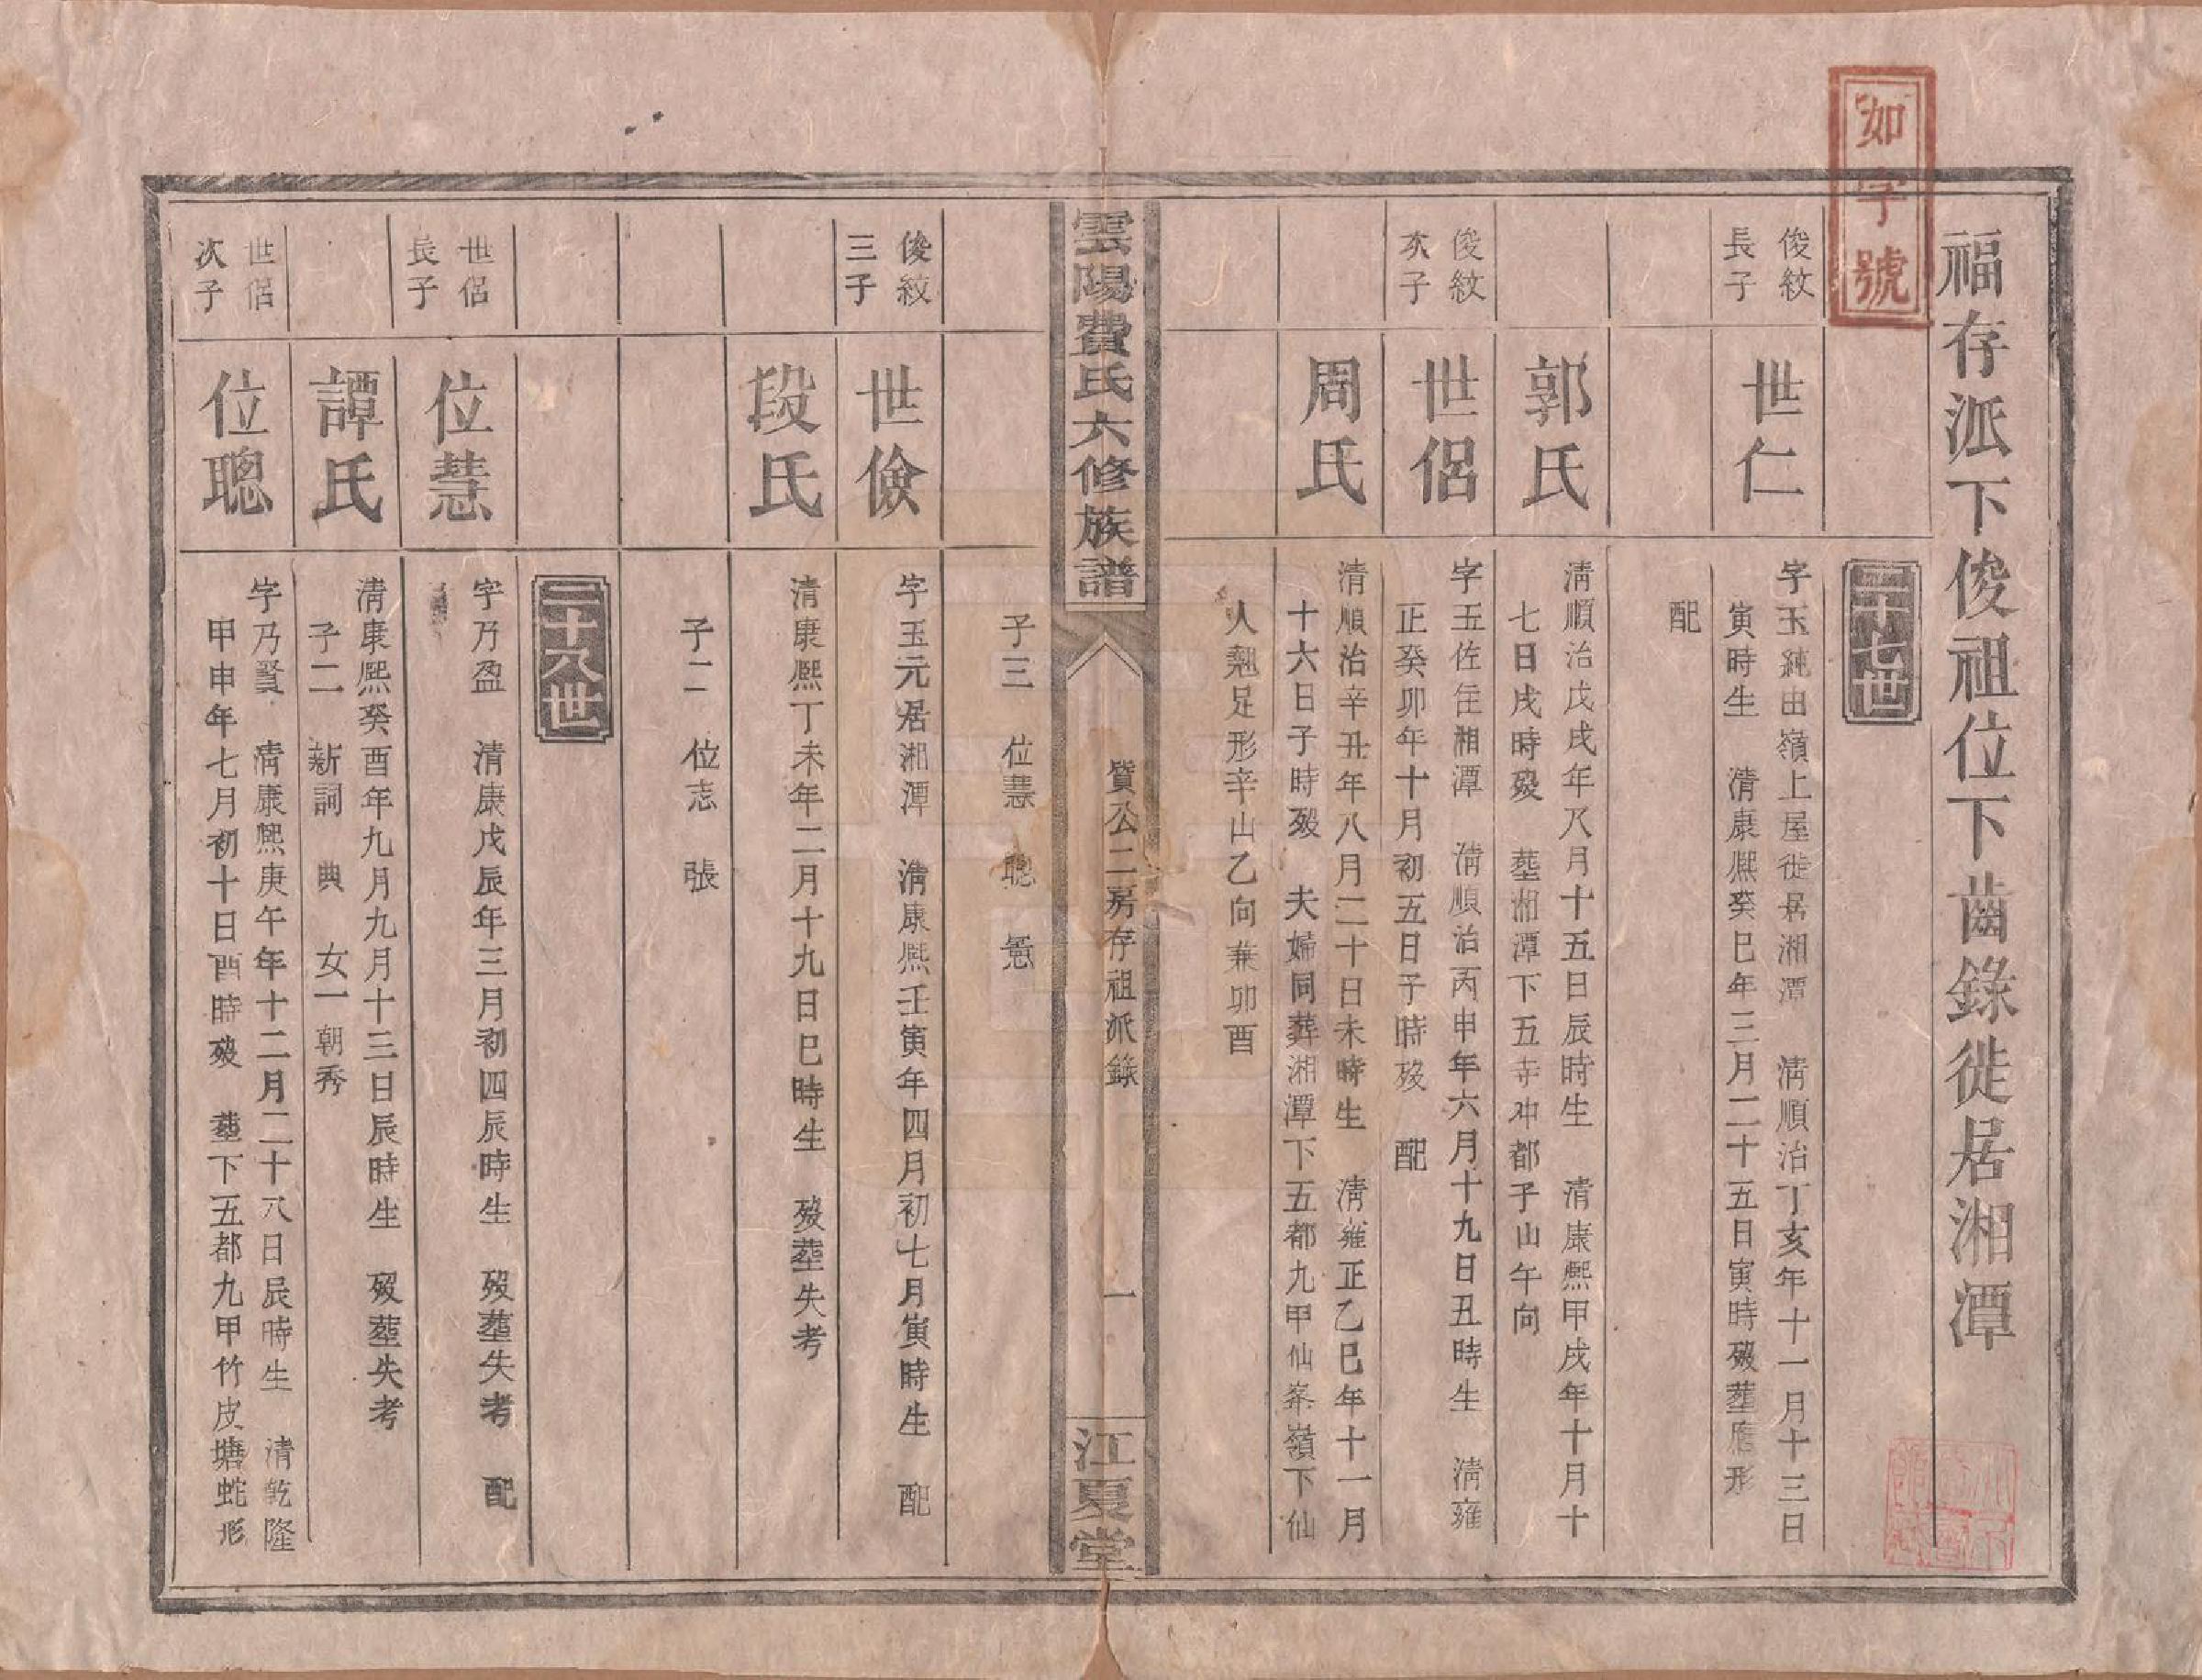 如字號
福存派下俊祖位下齒錄徙居湘潭
二十七世
俊紋長子
世仁
字玉純由嶺上屋徙居湘潭 清順治丁亥年十一月十三日
寅時生 清康熈癸巳年三月二十五日寅時歿塟形
配
郭氏
清順治戊戌年八月十五日辰時生 清康熈甲戌年十月十
七日戌時歿 塟湘潭下五寺冲都子山午向
俊紋次子
世侶
字玉佐住湘潭 清順治丙申年六月十九日丑時生 清雍
正癸卯年十月初五日子時歿 配
周氏
清順治辛丑年八月二十日未時生 清雍正乙巳年十一月
十六日子時歿 夫婦同葬湘潭下五都九甲仙峯嶺下仙
人翹足形辛山乙向兼卯酉
雲陽費氏六修族譜
貿公二房存祖派錄
一
江夏堂
子三 位慧 聰
俊紋三子
世儉
字玉元居湘潭 清康熈壬寅年四月初七月寅時生 配
段氏
清康熈丁未年二月十九日巳時生 歿塟失考
子二 位志 張
二十八世
世侶長子
位慧
字乃盈 清康戊辰年三月初四辰時生 歿塟失考 配
譚氏
清康熈癸酉年九月九月十三日辰時生 歿塟失考
子二 新詞 典 女一朝秀
世侶次子
位聰
字乃賢 清康熈庚午年十二月二十八日辰時生 清乾隆
甲申年七月初十日酉時歿 塟下五都九甲竹皮塘蛇形